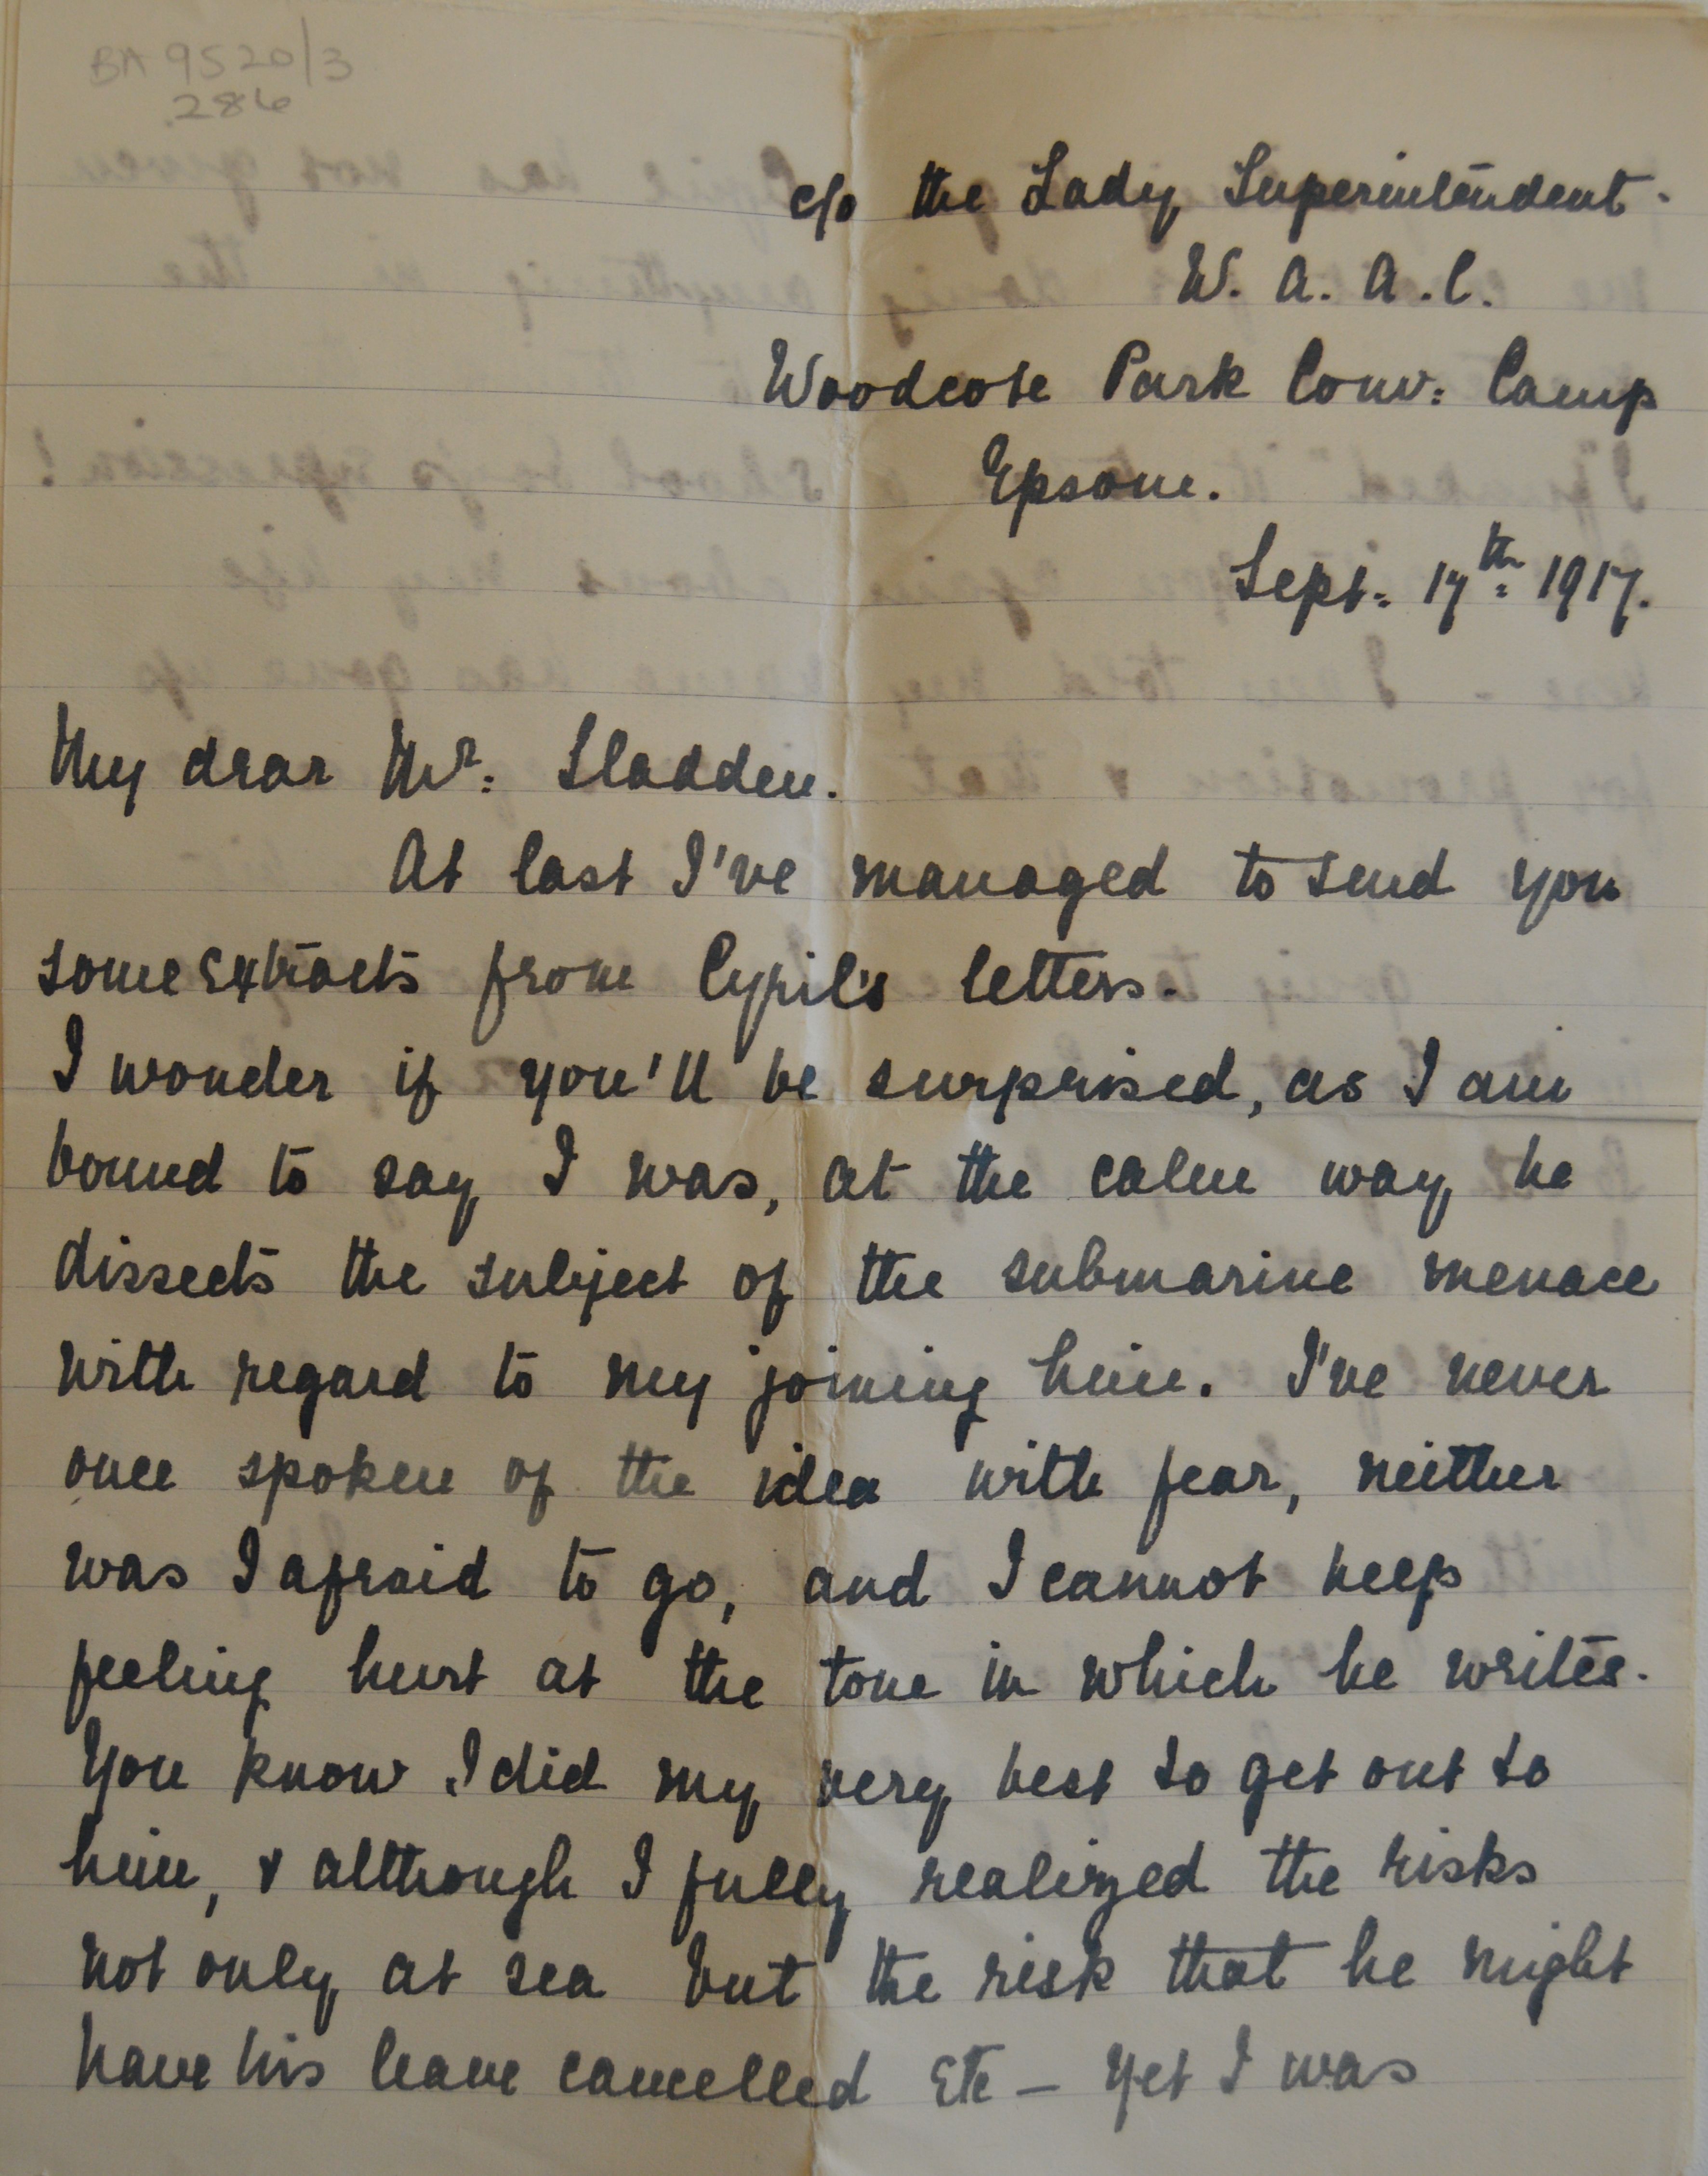 BA 9520/3
286
c/o the Lady Superintendent.
W. A. A. C.
Woodcote Park Conv: Camp
Epsom.
Sept. 17th: 1917.
My dear Mr: Sladden.
At last I've managed to send you
some extracts from Cyril's letters.
I wonder if you'll be surprised, as I am
bound to say I was, at the calm way he
dissects the subject of the submarine menace
with regard to my joining him. I've never
once spoken of the idea with fear, neither
was I afraid to go, and I cannot help
feeling hurt at the tone in which he writes.
You know I did my very best to get out to
him, & although I fully realized the risks
not only at sea but the risk that he might
have his leave cancelled etc – yet I was